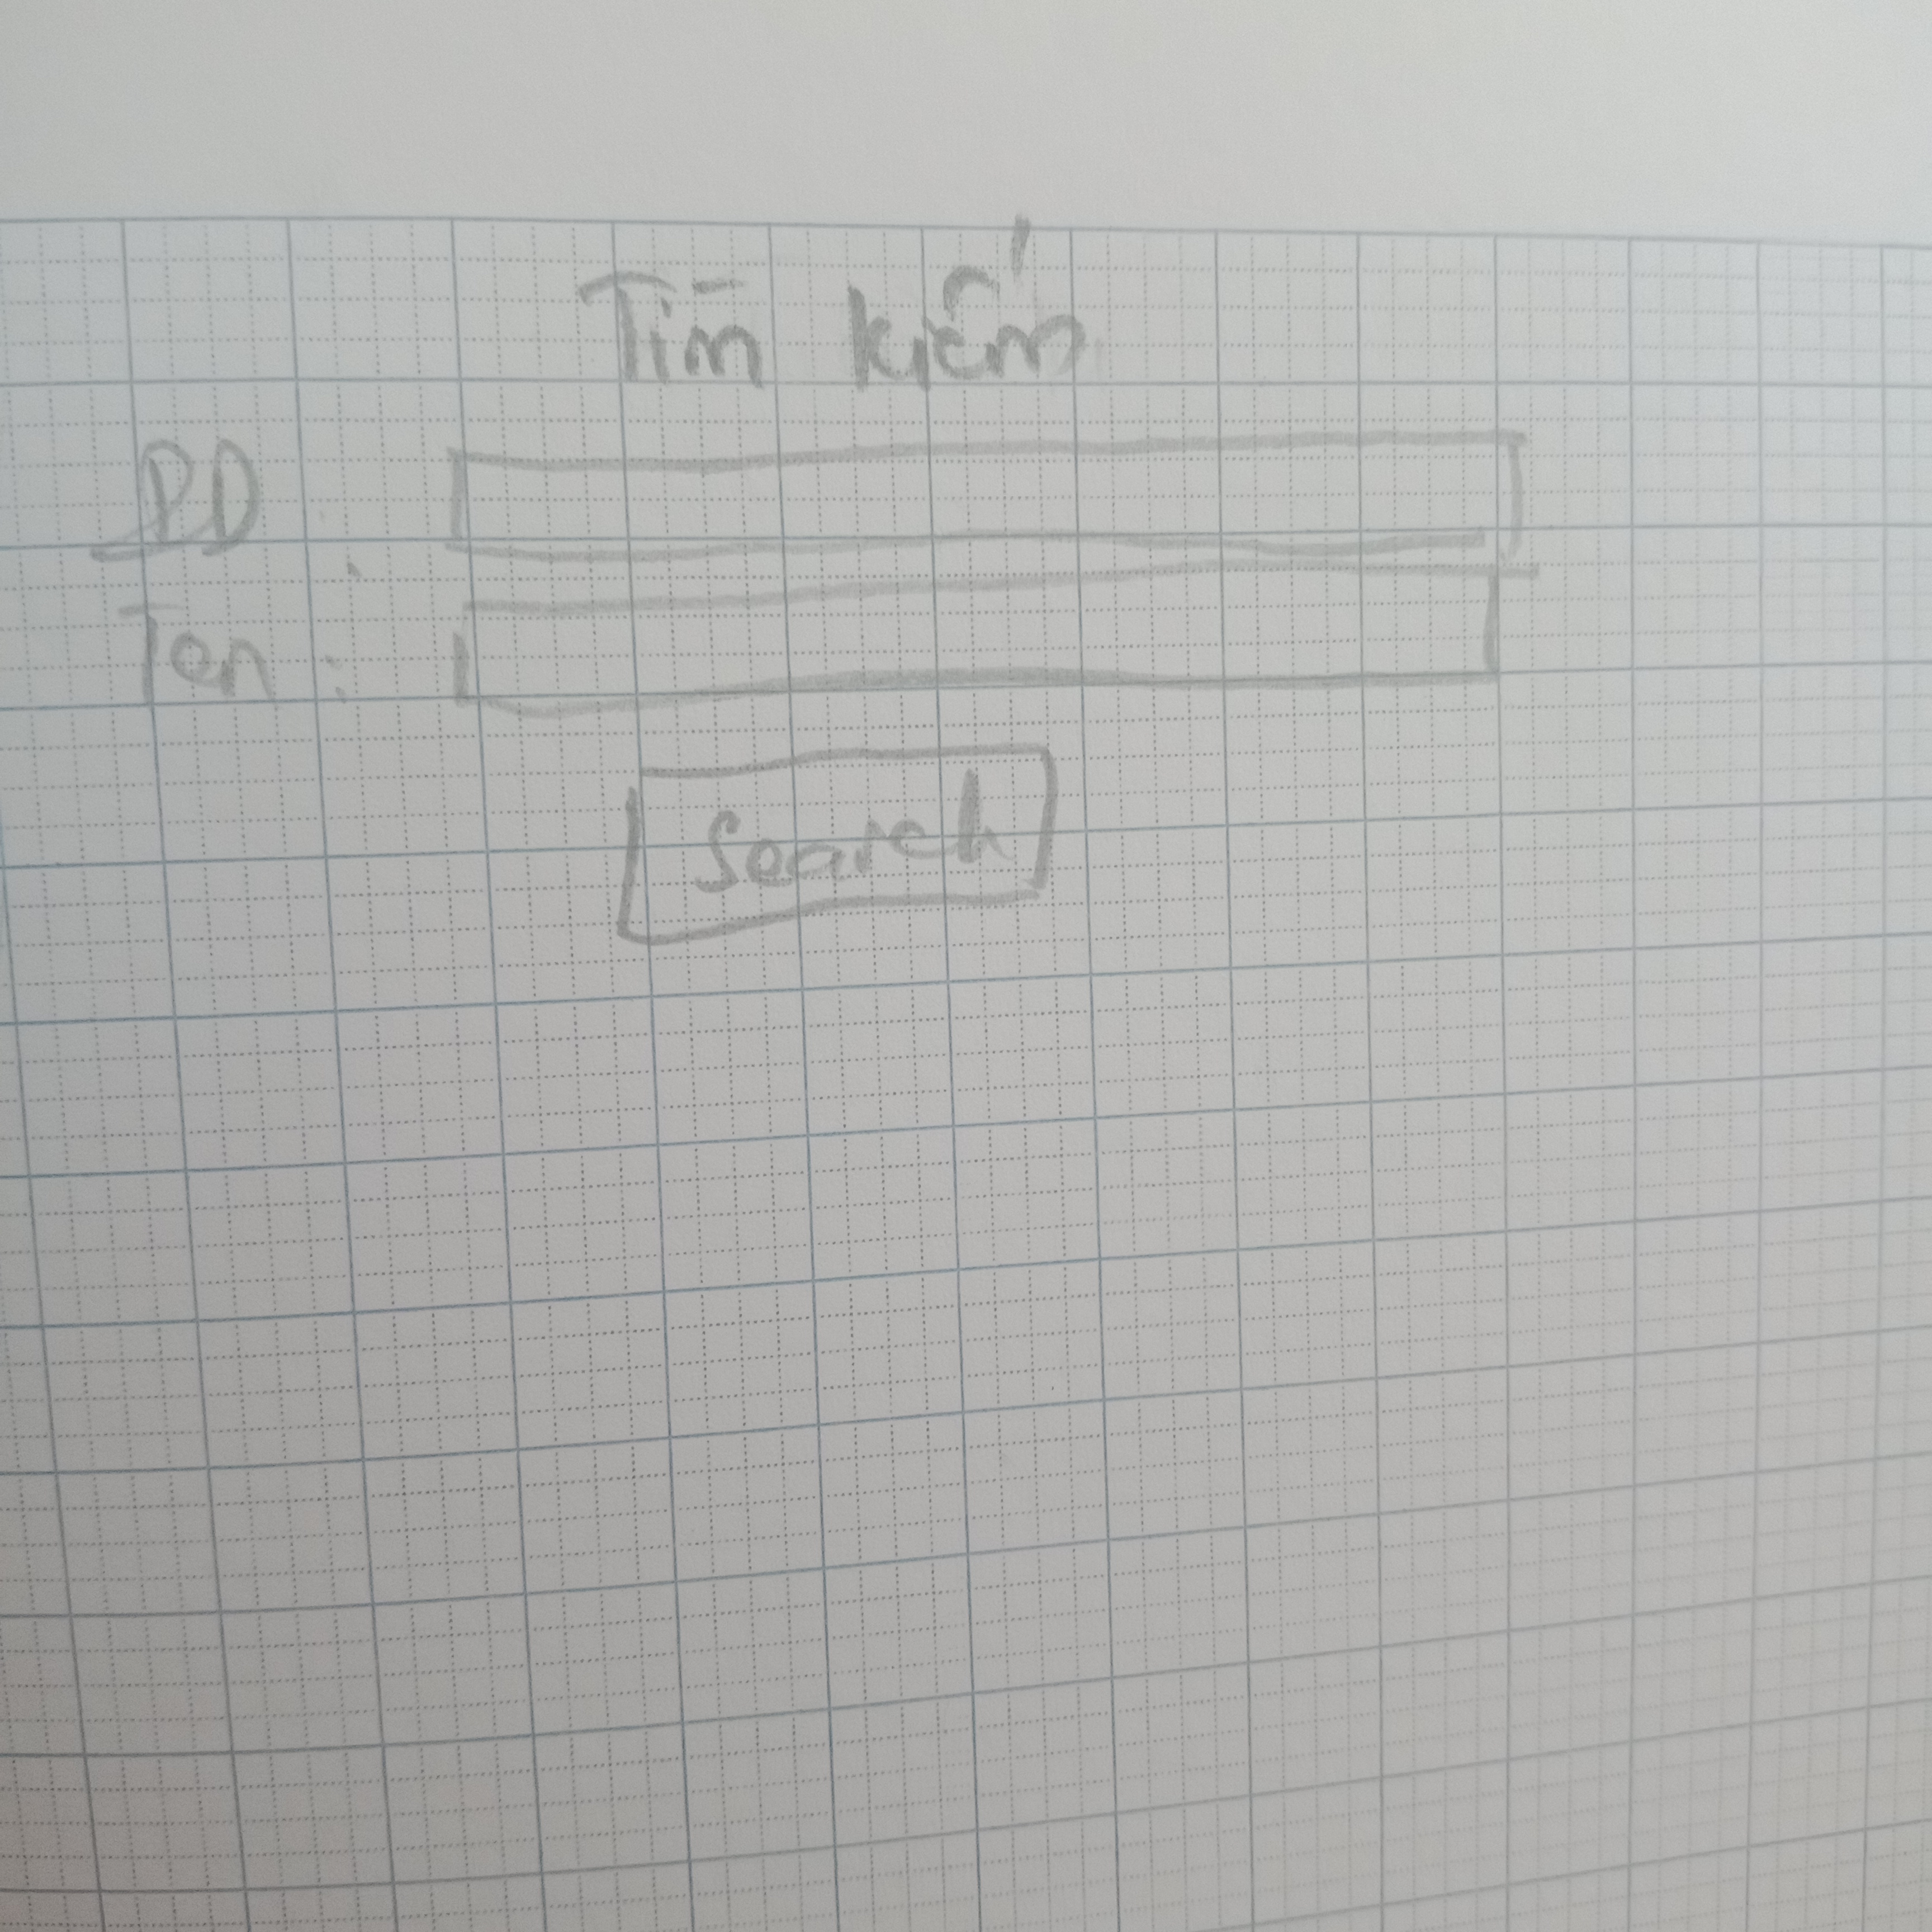 Tìm kiếm
ID :
Ten :
Search